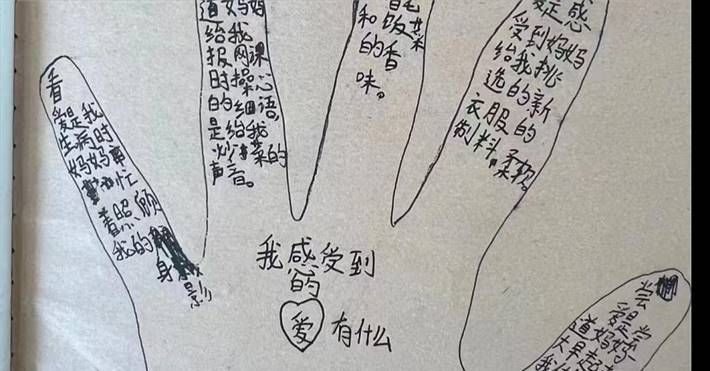 看
爱是我
生病时
妈妈
忙
着照顾
我的
身影
道妈妈
给我
报网课
时操心
的细语。
是给我
炒菜的
声音。
饭菜
和香
的
味。
感
受到妈妈
给我挑
选的新
衣服的
制料，柔软。
我感受到
的
爱有什么
尝
爱是尝
道妈妈
大早起